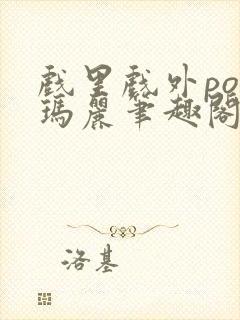 戲里戲外po
瑪麗筆趣閣
洛基